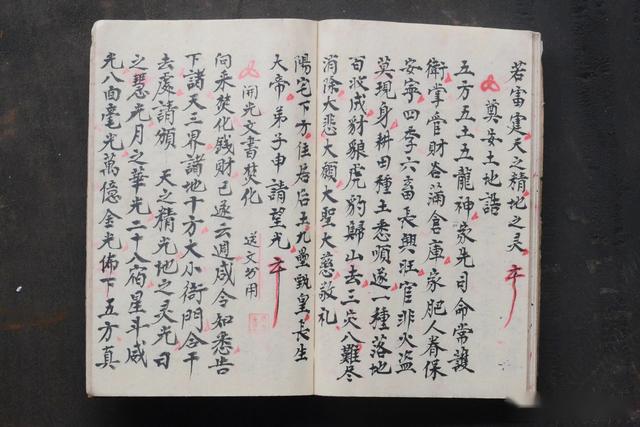 若富蓮天之精地之灵
奠安土地誥
五方五土五龍神家先司命常護
衛掌管財谷滿倉庫家肥人眷保
安寧四季六畜長興旺官非火盗
莫現身耕田種土悉順遂一種落地
百收成豺狼虎豹歸山去三灾八難尽
消除大悲大願大聖大慈敬礼
陽宅下方住居后土九壘甄皇長生
大帝弟子申請望光
開光文書焚化 送文书用
向来焚化钱財已遂云週咸令知悉告
下諸天三界諸地十方大小衙門合干
去處請頒 天之精光地之灵光日
之慧光月之華光二十八宿星斗威
光八面毫光萬億金光佈下五方真